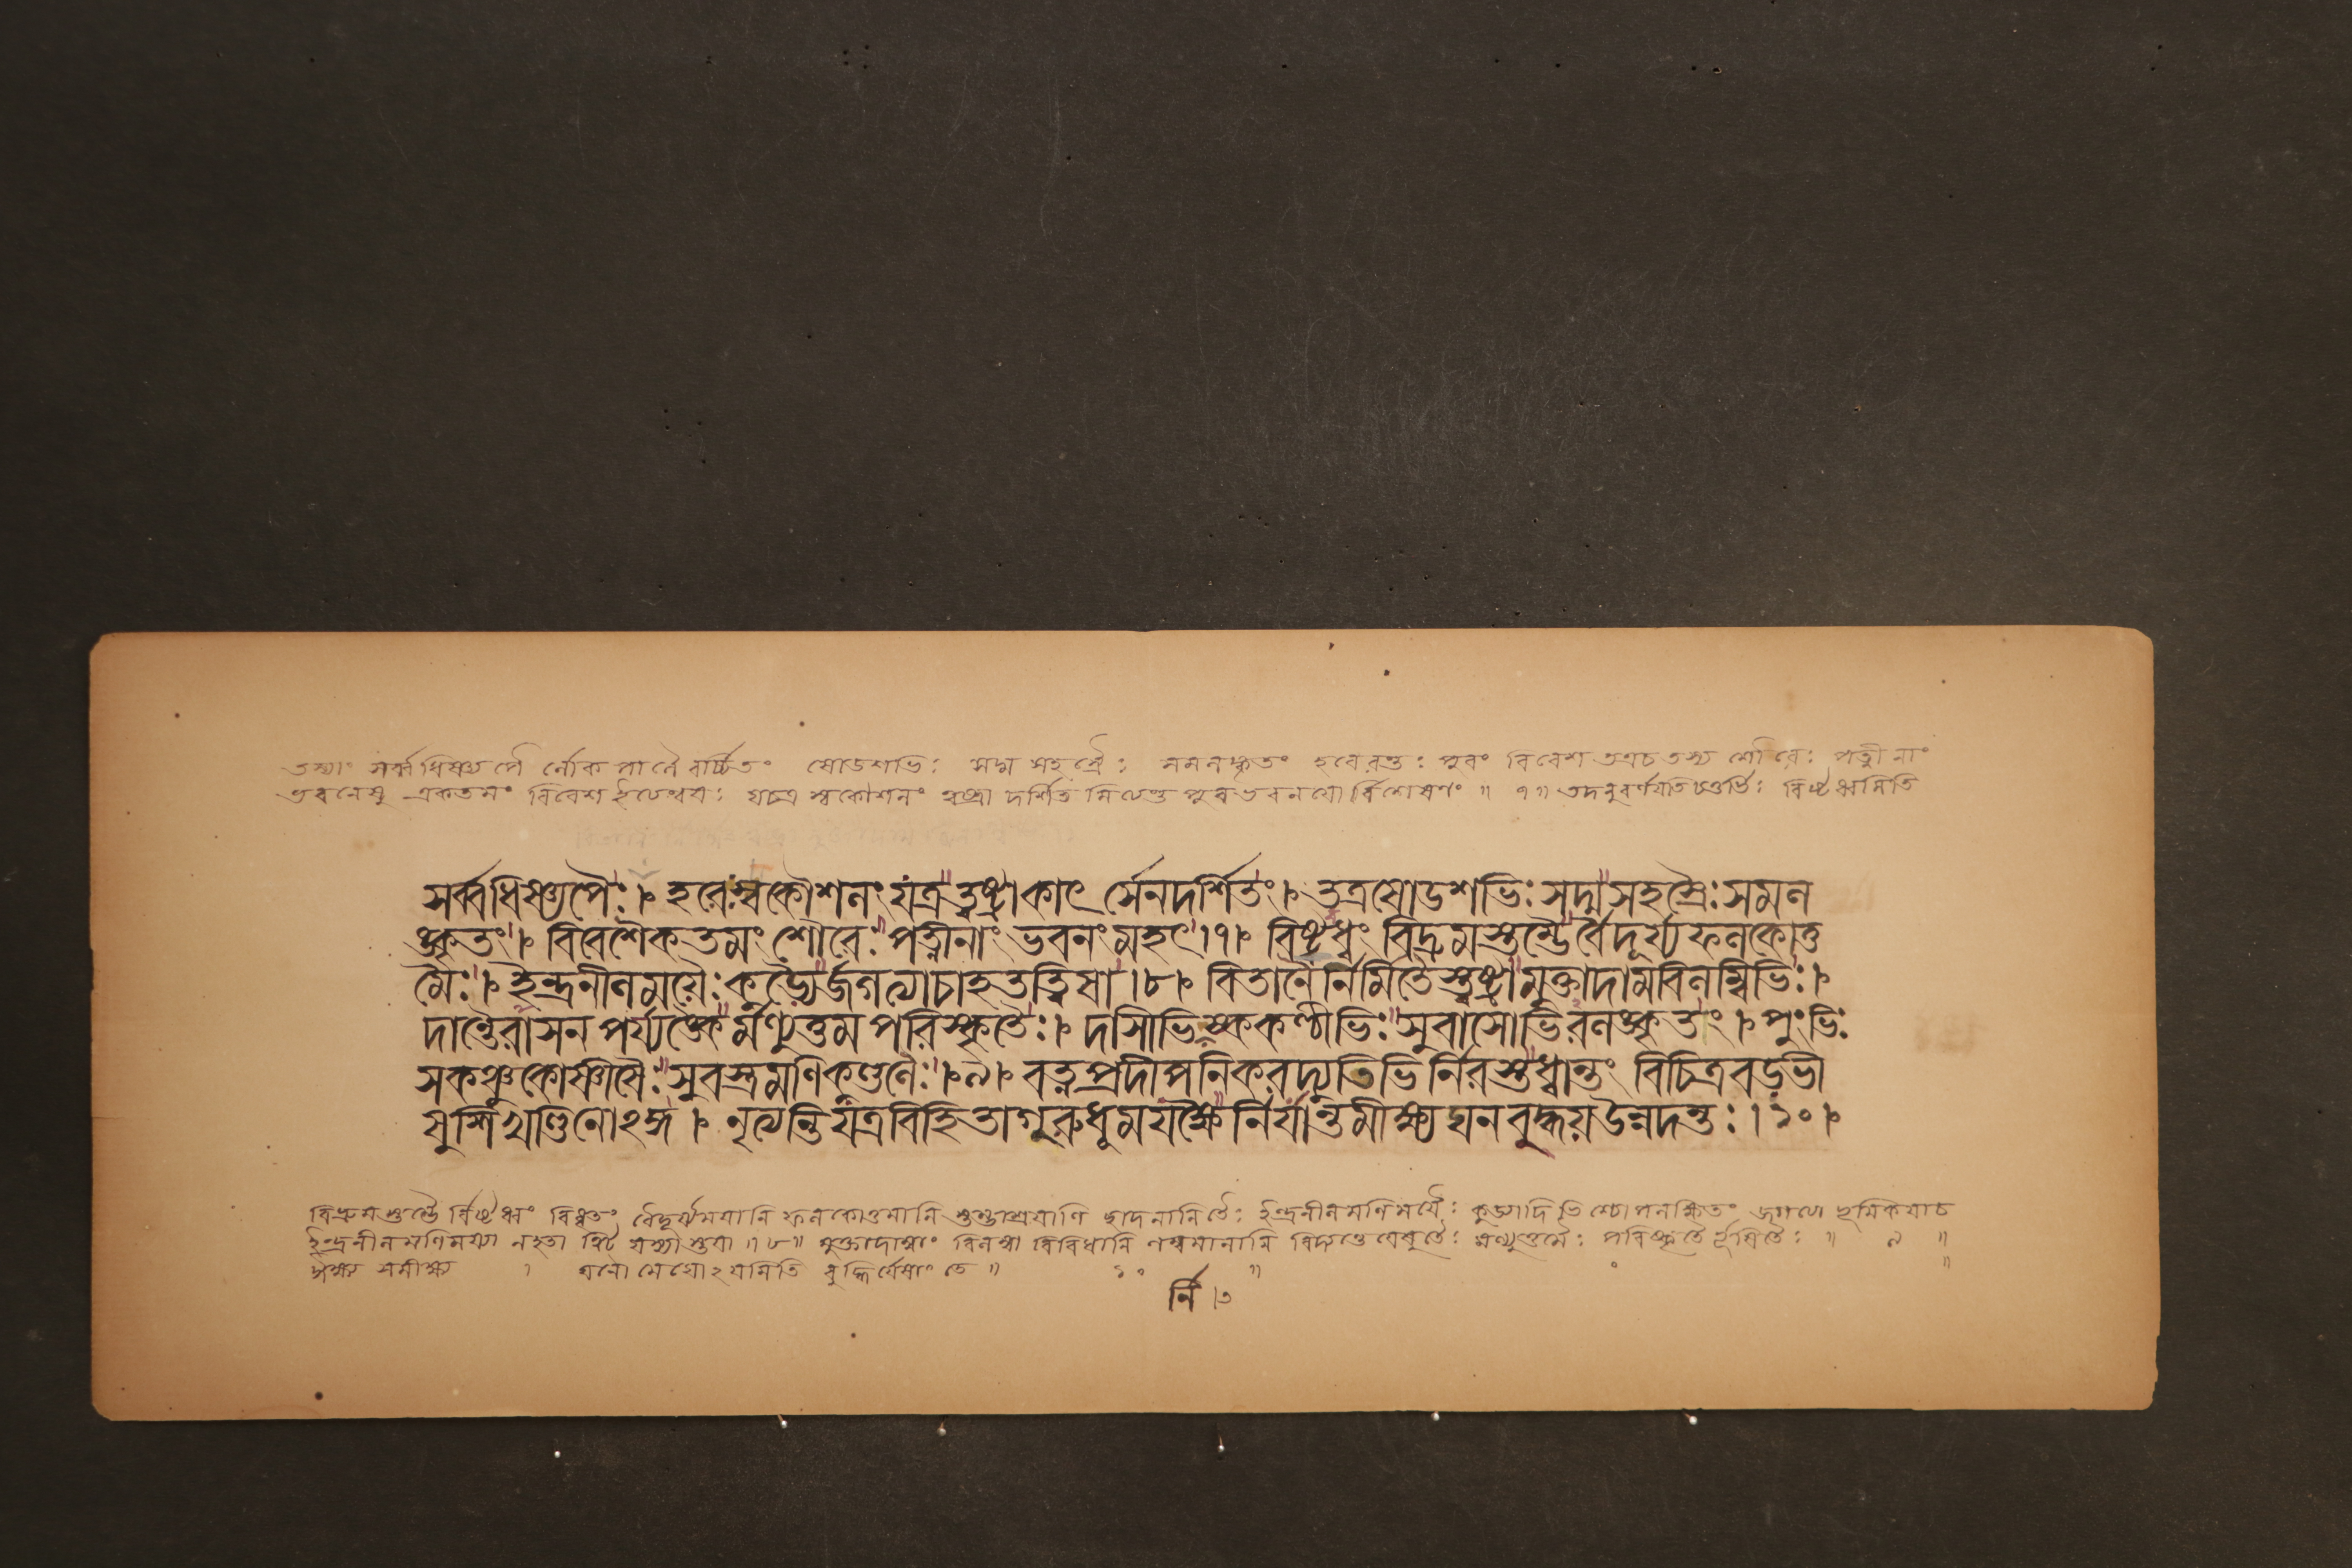 তস্যাং সর্ব্বধিষ্ণ্যপৈ র্লোকপালৈ রর্চ্চিতং ষোডশভিঃ সদ্ম সহস্রৈঃ সমলঙ্কৃতং হরেরন্তঃ পুরং বিবেশ তত্রচ তস্য শৌরেঃ পত্নী নাং
ভবনেষু একতমং বিবেশ যত্র স্বকৌশলং ত্বষ্ট্রা দর্শিতমিতি ॥ ৭॥ তদনুবর্ণযতি চতুর্ভিঃ বিষ্টব্ধমিতি
সর্ব্বধিষ্ণ্যপৈঃ।১ হরেঃস্বকৌশলং যত্র ত্বষ্ট্রাকাৎর্স্যেনদর্শিতং।১ তত্রষোডশভিঃ সদ্মসহস্রৈঃ সমল
ঙ্কৃতং।১ বিবেশৈকতমং শৌরেঃ পত্নীনাং ভবনং মহৎ।৭।১ বিষ্টব্ধং বিদ্রুমস্তম্ভৈর্বৈদূর্য্যফলকোত্ত
মৈঃ।১ ইন্দ্রনীলময়ৈঃ কুড্যৈর্জগত্যাচাহতত্বিষা।৮।১ বিতানৈর্নির্মিতৈস্ত্বষ্ট্রা মুক্তাদামবিলম্বিভিঃ।১
দান্তৈরাসন পর্য্যঙ্কৈর্মণ্যুত্তম পরিস্কৃতৈঃ।১ দাসীভির্নিষ্ককণ্ঠীভিঃ সুবাসোভিরলঙ্কৃতং।১ পুংভিঃ
সকঞ্চুকোষ্ণীষৈঃ সুবস্ত্রমণিকুণ্ডলৈঃ।১।৯।১ রত্নপ্রদীপনিকরদ্যুতিভি র্নিরস্তধ্বান্তং বিচিত্রবড়ভী
ষুশিখণ্ডিনোঽঙ্গ।১ নৃত্যন্তি যত্রবিহিতাগুরুধূমমক্ষৈ র্নির্যান্তমীক্ষ্য ঘনবুদ্ধয় উন্নদন্তঃ।১০।১
বিদ্রুমস্তম্ভৈ র্বিষ্টব্ধং বিধৃতং বৈদূর্য্যময়ানি ফলকোত্তমানি স্তম্ভাশ্রয়াণি ছাদনানিতৈঃ ইন্দ্রনীলমণিময়ৈঃ কুড্যাদিভি শ্চোপলক্ষিতং
ইন্দ্রনীলমণিময্যা নহতা ত্বিট্ যস্যাস্তয়া ॥৮॥ মুক্তাদাম্নাং মণ্যুত্তমৈঃ পরিষ্কৃতৈ র্ভূষিতৈঃ ॥ ৯ ॥
ঈক্ষ্য সমীক্ষ্য । ঘনো মেঘোঽয়মিতি বুদ্ধির্যেষাং তে ॥ ১০ ॥